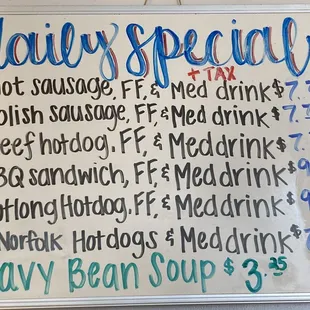 daily special
+ TAX
ot sausage, FF, & Med drink $7.
olish sausage, FF, & Med drink $7.
eef hotdog. FF, & Med drink $7.
BQ sandwich, FF, & Med drink $9
otlong Hotdog. FF, & Med drink $9
Norfolk Hotdogs & Med drink $7
avy Bean Soup $3.25